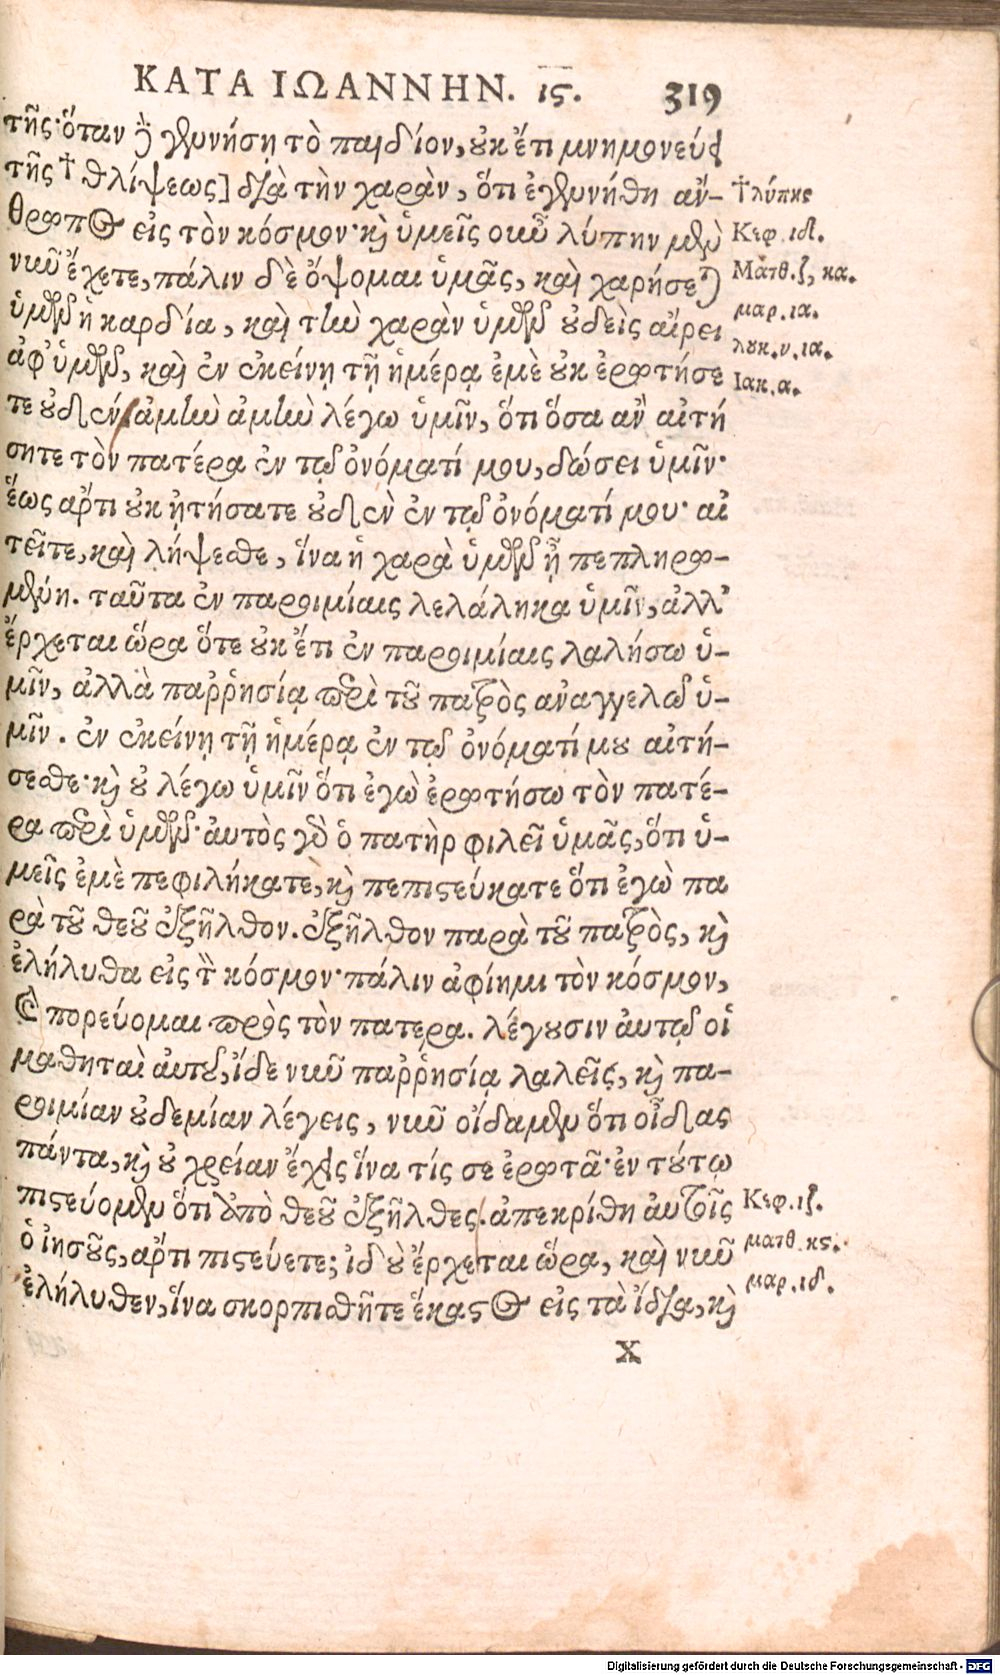 ΚΑΤΑ ΙΩΑΝΝΗΝ. ις. 319
τῆς· ὅταν δὲ γεννήσῃ τὸ παιδίον, οὐκ ἔτι μνημονεύει
τῆς † θλίψεως] διὰ τὴν χαρὰν, ὅτι ἐγεννήθη ἄν-
θρωπος εἰς τὸν κόσμον· καὶ ὑμεῖς οὖν λύπην μὲν
νῦν ἔχετε, πάλιν δὲ ὄψομαι ὑμᾶς, καὶ χαρήσεται
ὑμῶν ἡ καρδία, καὶ τὴν χαρὰν ὑμῶν οὐδεὶς αἴρει
ἀφ' ὑμῶν, καὶ ἐν ἐκείνῃ τῇ ἡμέρᾳ ἐμὲ οὐκ ἐρωτήσε
τε οὐδέν. ἀμὴν ἀμὴν λέγω ὑμῖν, ὅτι ὅσα ἂν αἰτή
σητε τὸν πατέρα ἐν τῷ ὀνόματί μου, δώσει ὑμῖν·
ἕως ἄρτι οὐκ ᾐτήσατε οὐδὲν ἐν τῷ ὀνόματί μου· αἰ
τεῖτε, καὶ λήψεσθε, ἵνα ἡ χαρὰ ὑμῶν ᾖ πεπληρω-
μένη. ταῦτα ἐν παροιμίαις λελάληκα ὑμῖν, ἀλλ'
ἔρχεται ὥρα ὅτε οὐκ ἔτι ἐν παροιμίαις λαλήσω ὑ-
μῖν, ἀλλὰ παῤῥησίᾳ περὶ τοῦ πατρὸς ἀναγγελῶ ὑ-
μῖν. ἐν ἐκείνῃ τῇ ἡμέρᾳ ἐν τῷ ὀνόματί μου αἰτή-
σεσθε· καὶ οὐ λέγω ὑμῖν ὅτι ἐγὼ ἐρωτήσω τὸν πατέ-
ρα περὶ ὑμῶν· ἀυτὸς γὰρ ὁ πατὴρ φιλεῖ ὑμᾶς, ὅτι ὑ-
μεῖς ἐμὲ πεφιλήκατε, καὶ πεπιστεύκατε ὅτι ἐγὼ πα
ρὰ τοῦ θεοῦ ἐξῆλθον. ἐξῆλθον παρὰ τοῦ πατρὸς, καὶ
ἐλήλυθα εἰς τὸν κόσμον· πάλιν ἀφίημι τὸν κόσμον,
καὶ πορεύομαι πρὸς τὸν πατερα. λέγουσιν ἀυτῷ οἱ
μαθηταὶ ἀυτοῦ, ἴδε νῦν παῤῥησίᾳ λαλεῖς, καὶ πα-
ροιμίαν οὐδεμίαν λέγεις, νῦν οἴδαμεν ὅτι οἶδας
πάντα, καὶ οὐ χρείαν ἔχεις ἵνα τίς σε ἐρωτᾷ· ἐν τούτῳ
πιστεύομεν ὅτι ἀπὸ θεοῦ ἐξῆλθες. ἀπεκρίθη ἀυτοῖς
ὁ ἰησοῦς, ἄρτι πιστεύετε; ἰδοὺ ἔρχεται ὥρα, καὶ νῦν
ἐλήλυθεν, ἵνα σκορπισθῆτε ἕκαστος εἰς τὰ ἴδια, καὶ
Χ
† λύπης
Κεφ. ιδ.
Ματθ. ζ, κα.
μαρ. ια.
λουκ. ν. ια.
Ιακ. α.
Κεφ. ιζ.
ματθ. κς.
μαρ. ιδ.
Digitalisierung gefördert durch die Deutsche Forschungsgemeinschaft - DFG